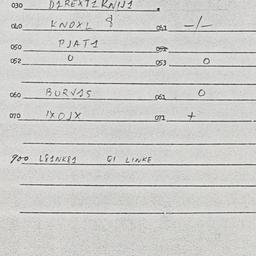 030 D1REXT1KNIJ1
040 KNOXL 8 041 -/-
050 PJAT1 052
052 0 053 0
060 BURV15 061 0
070 IXOJX 071 +
900 L81NK81 GI LINKE